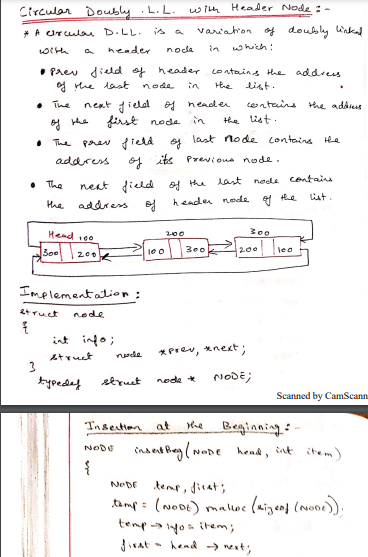 Circular Doubly .L.L. with Header Node :-
* A circular D.LL. is a variation of doubly linked
with a header node in which:
• prev field of header contains the address
of the last node in the list.
• The next field of header contains the address
of the first node in the list.
• The prev field of last Node contains the
address of its previous node.
• The next field of the last node contains
the address of header node of the list.
Head 100 200 300
300 200 100 300 200 100
Implementation :
struct node
{
int info;
struct node *prev, *next;
}
typedef struct node * NODE;
Scanned by CamScann
Insertion at the Beginning :-
NODE insertBeg (NODE head, int item)
{
NODE temp, first;
temp = (NODE) malloc (sizeof (NODE));
temp → info = item;
first = head → next;